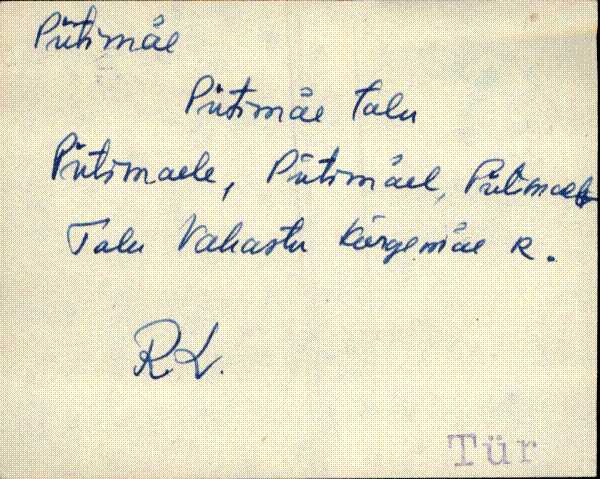 Pütimäe
Pütimäe talu
Pütimaele, Pütimäel, Pütimaelt
Talu Vahastu Kõrgemäe k.
R.L.
Tür